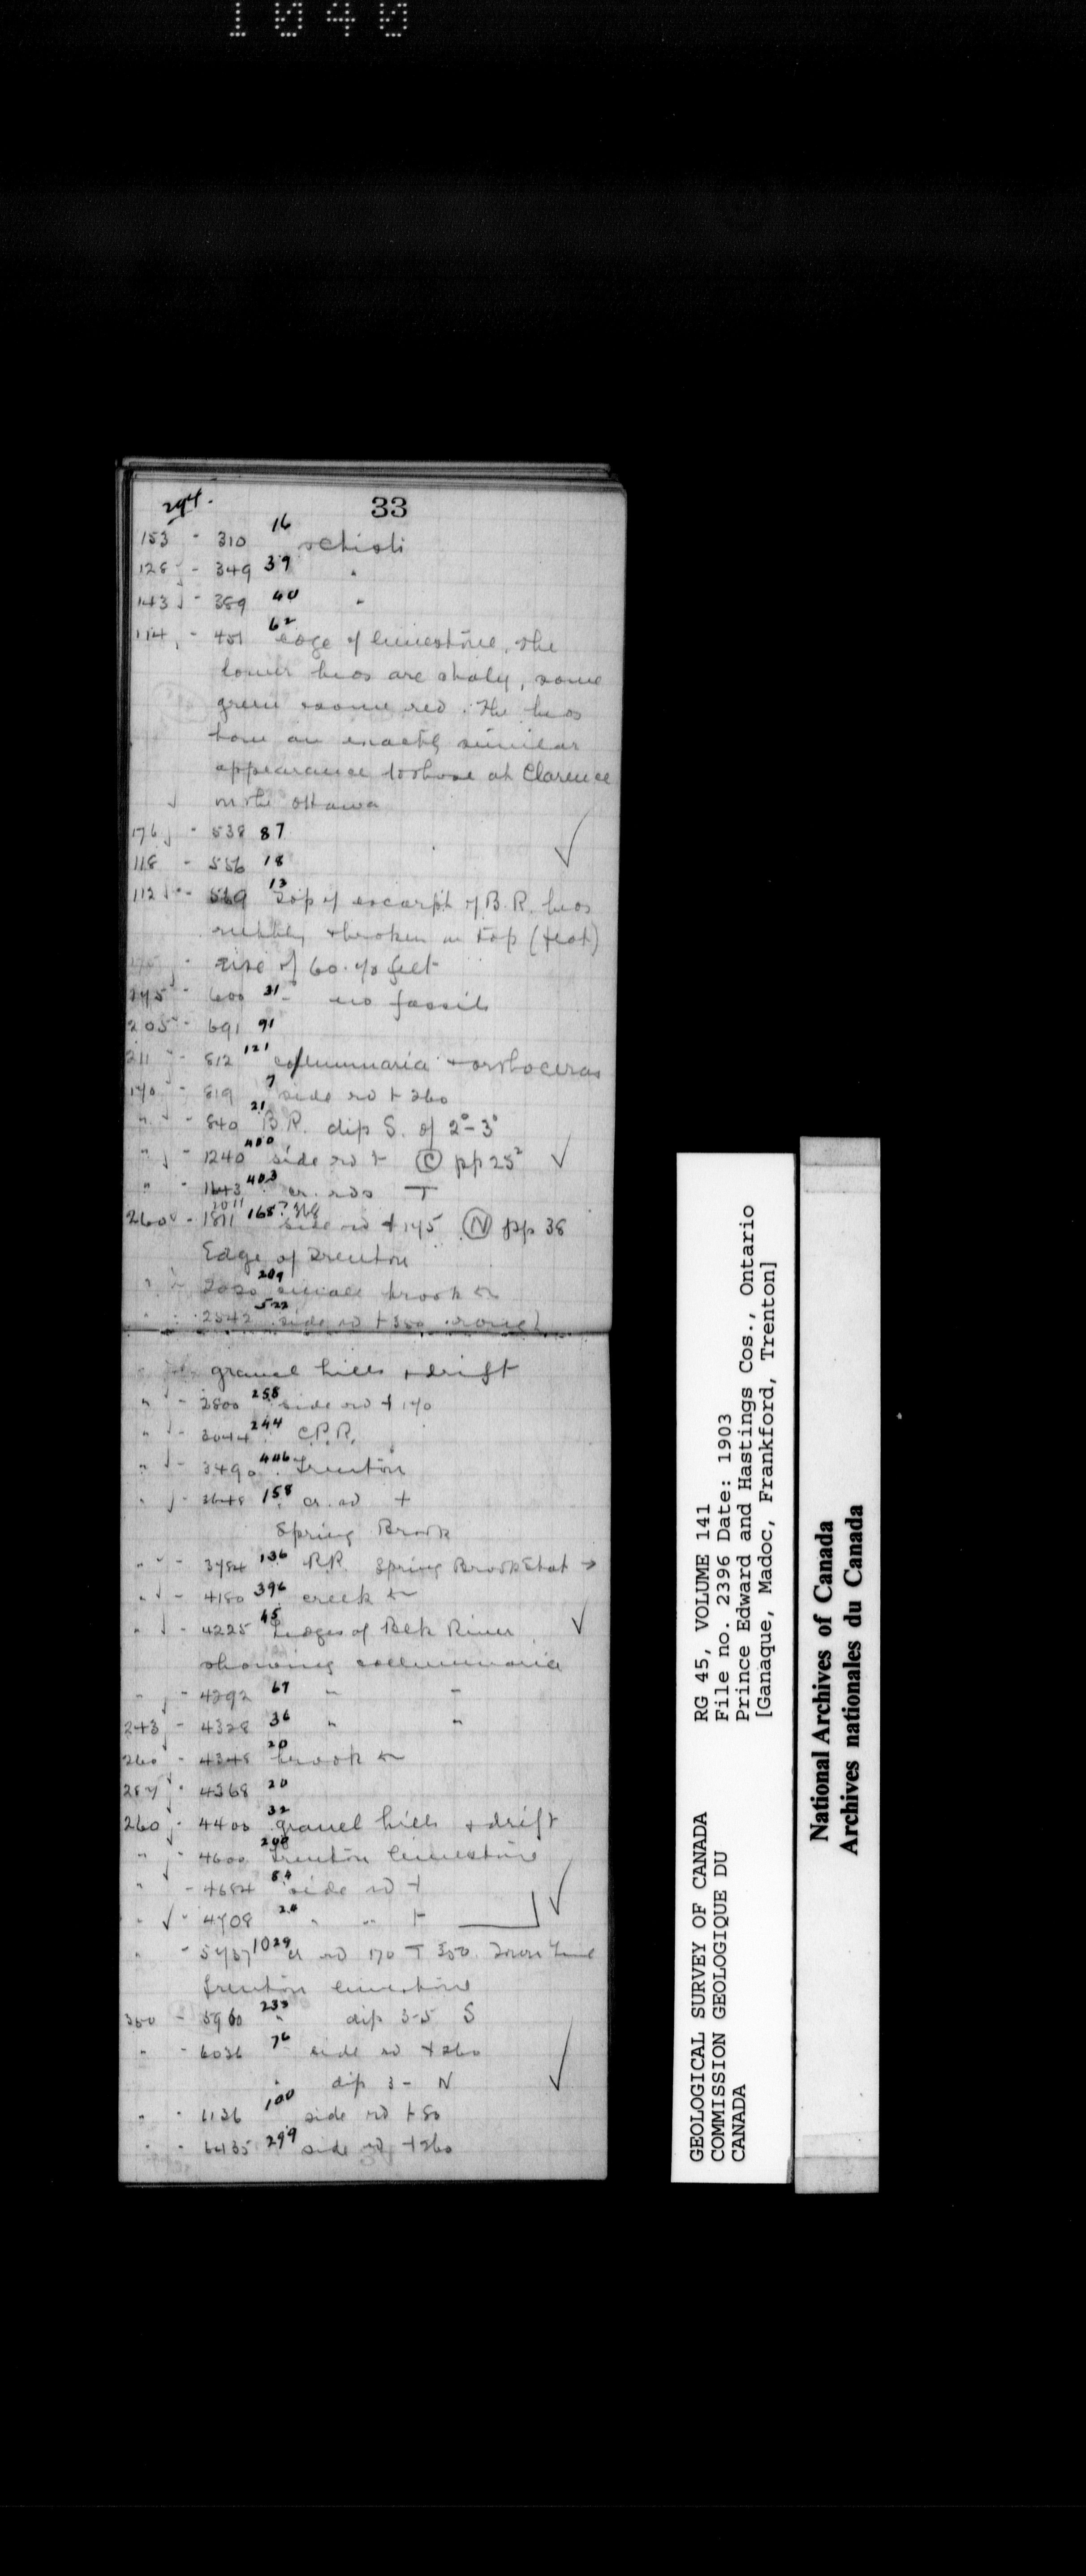 1040
33
294.
153 - 310 16 schist
128 - 349 39 "
143 - 389 40 "
114 - 451 62 edge of limestone, the
lower beds are shaly, some
green some red. The beds
have an exactly similar
appearance to those at Clarence
on the Ottawa
176 - 538 87
118 - 556 18
112 - 569 13 Top of escarpt of B.R. beds
rubbly & broken on top (flat)
rise of 60-70 feet
245 - 600 31 no fossils
205 - 691 91
211 - 812 121 collumnaria & orthoceras
170 - 819 7 side rd ⊢ 260
" - 840 21 B.R. dip S. of 2°-3°
" - 1240 400 side rd ⊢ Ⓒ pp 25²
" - 1643 403 cr. rds T
260 - 1811 1011 168? 368 side rd + 175 Ⓝ pp 38
Edge of Trenton
" - 2020 209 small brook
" - 2542 522 side rd + 350
gravel hills & drift
" - 2800 258 side rd + 170
" - 3044 244 C.P.R.
" - 3490 446 Trenton
" - 3648 158 cr. rd +
Spring Brook
" - 3784 136 R.R. Spring Brook Stat →
" - 4180 396 creek
" - 4225 45 Ledges of Blk River
showing collumnaria
" - 4292 67 " "
243 - 4328 36 " "
260 - 4348 20 brook
287 - 4368 20
260 - 4400 32 gravel hills & drift
" - 4600 200 Trenton limestone
" - 4684 84 side rd ⊢
" - 4708 24 " " ⊢
" - 5737 1029 cr rd 170 T 350. Town Line
Trenton limestone
350 - 5960 233 " dip 3-5 S
" - 6036 76 side rd + 260
" dip 3- N
" - 6136 100 side rd + 80
" - 6435 299 side rd + 260
GEOLOGICAL SURVEY OF CANADA
COMMISSION GEOLOGIQUE DU
CANADA
RG 45, VOLUME 141
File no. 2396 Date: 1903
Prince Edward and Hastings Cos., Ontario
[Ganaque, Madoc, Frankford, Trenton]
National Archives of Canada
Archives nationales du Canada